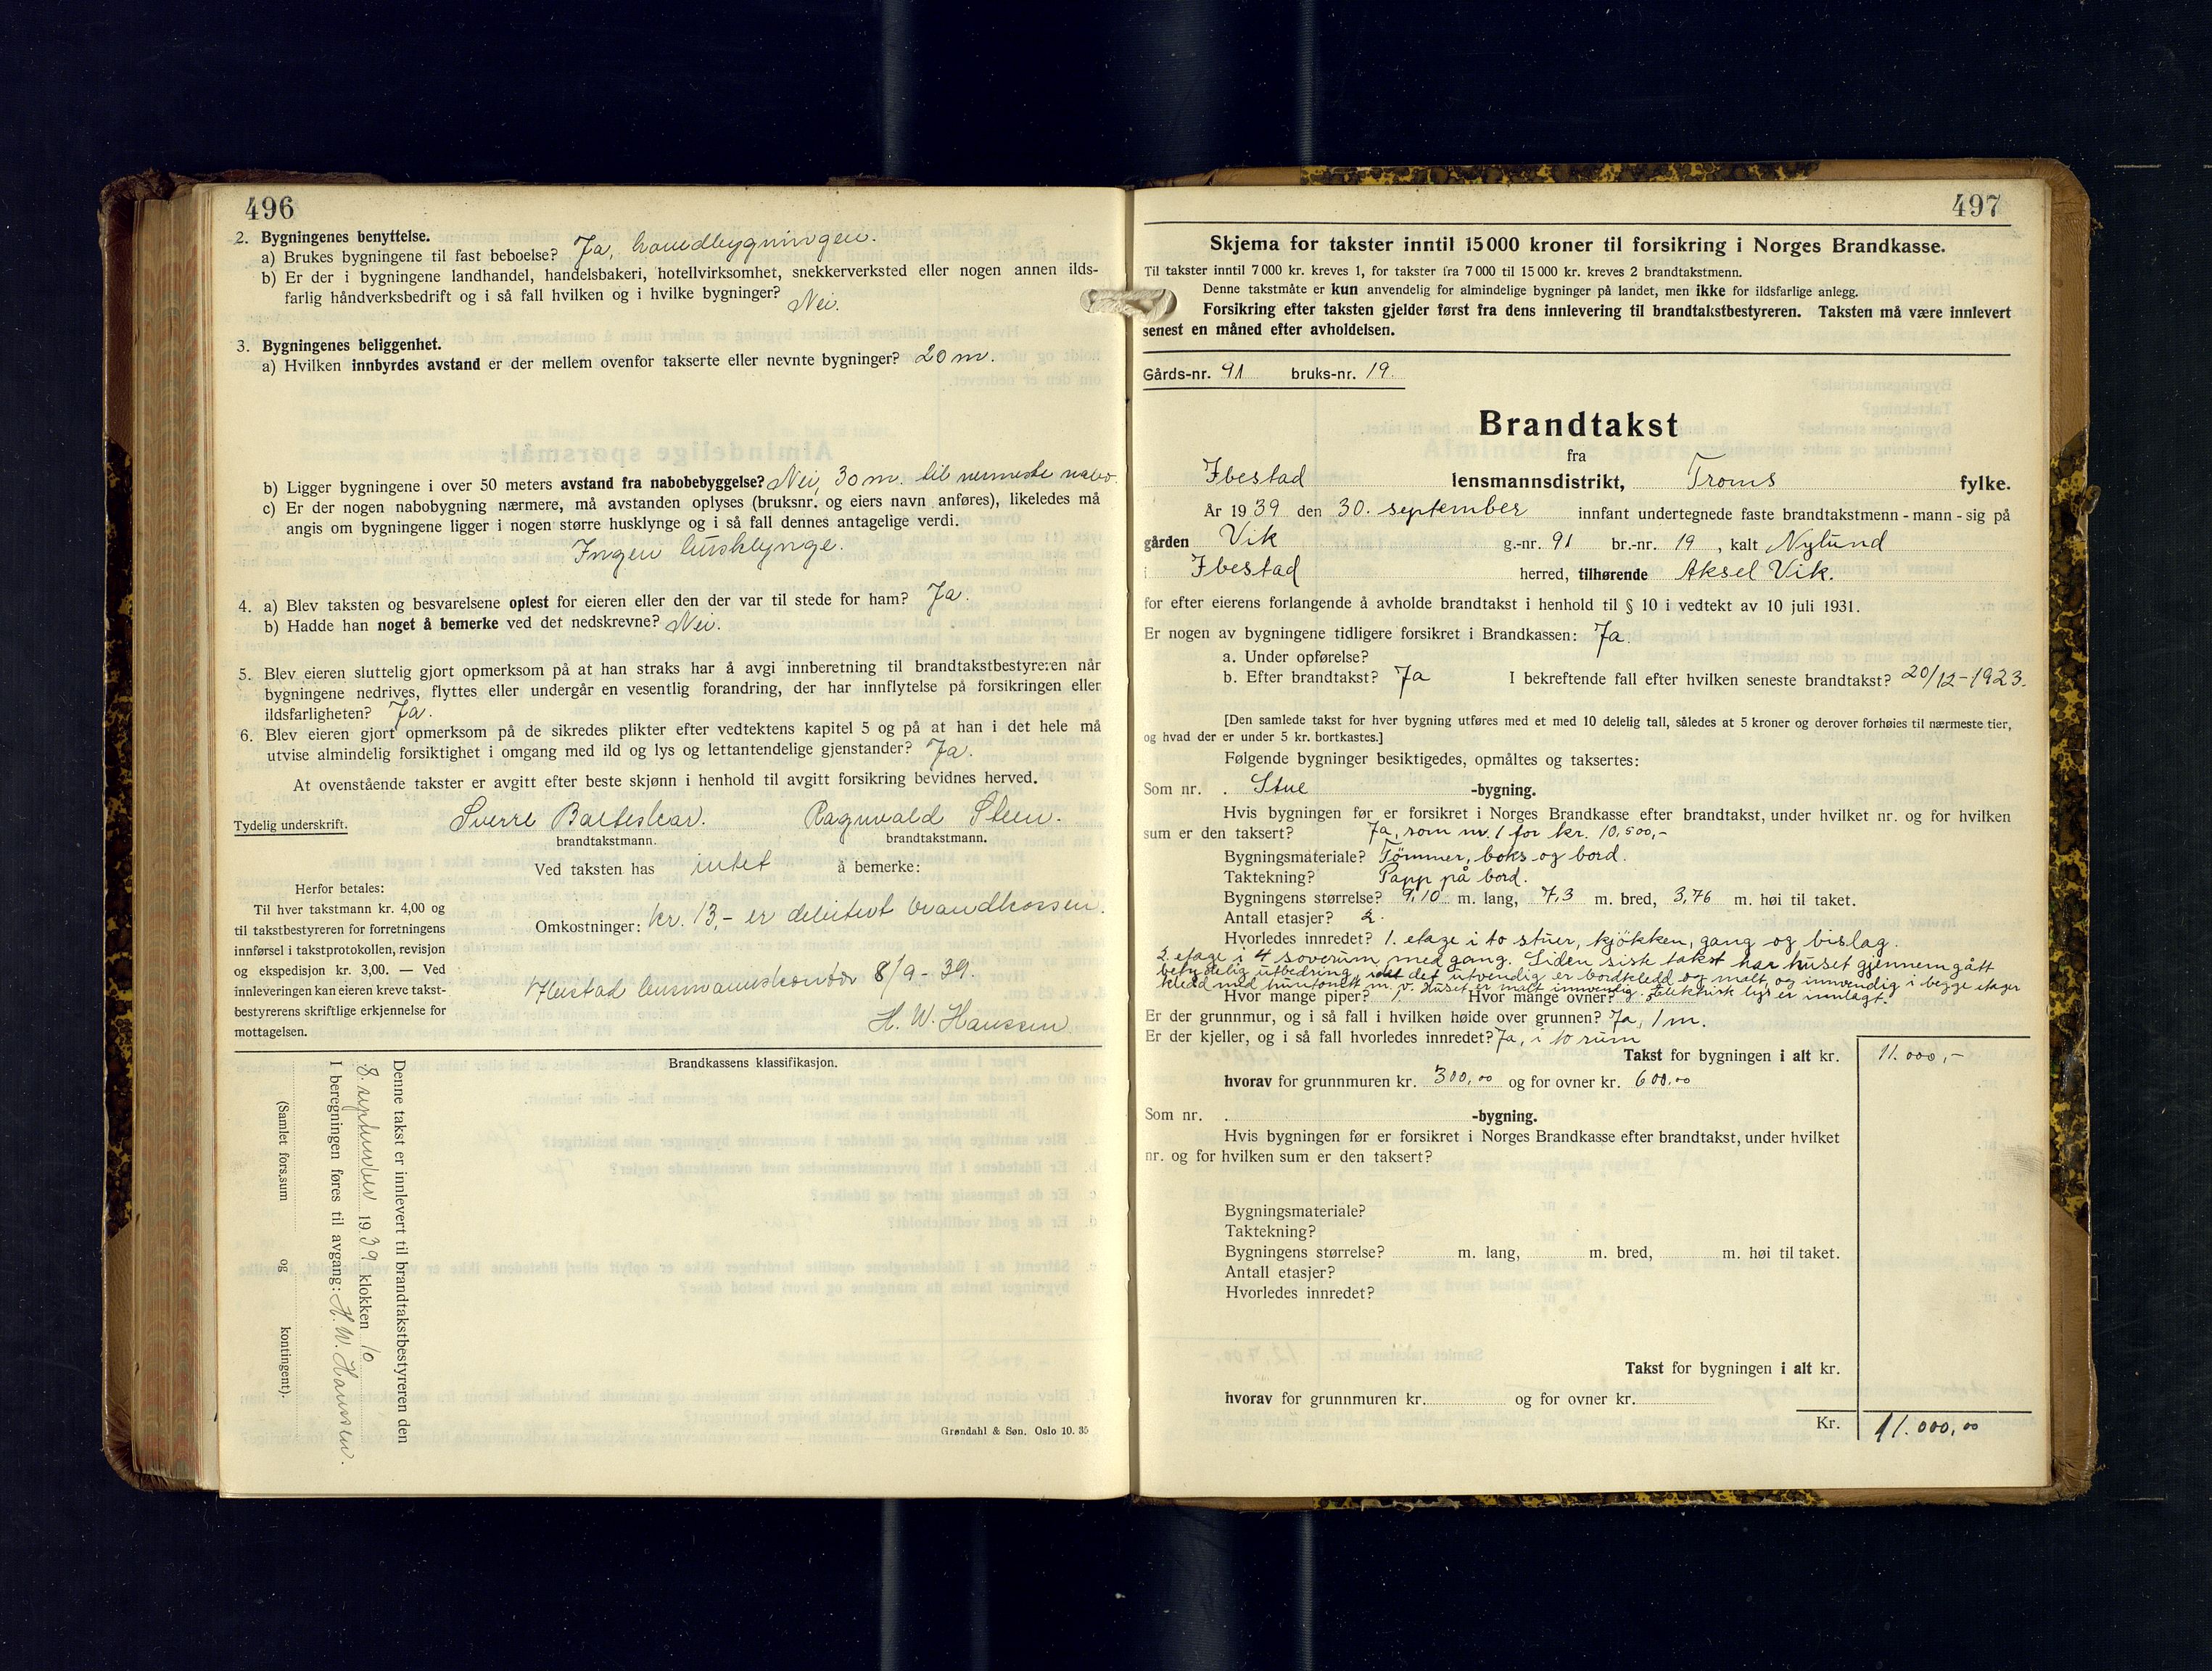 496
2. Bygningenes benyttelse.
a) Brukes bygningene til fast beboelse? Ja, hovedbygningen.
b) Er der i bygningene landhandel, handelsbakeri, hotellvirksomhet, snekkerverksted eller nogen annen ilds-
farlig håndverksbedrift og i så fall hvilken og i hvilke bygninger? Nei.
3. Bygningenes beliggenhet.
a) Hvilken innbyrdes avstand er der mellem ovenfor takserte eller nevnte bygninger? 20 m.
b) Ligger bygningene i over 50 meters avstand fra nabobebyggelse? Nei, 30 m. til nermeste nabo.
c) Er der nogen nabobygning nærmere, må avstanden oplyses (bruksnr. og eiers navn anføres), likeledes må
angis om bygningene ligger i nogen større husklynge og i så fall dennes antagelige verdi.
Ingen husklynge.
4. a) Blev taksten og besvarelsene oplest for eieren eller den der var til stede for ham? Ja.
b) Hadde han noget å bemerke ved det nedskrevne? Nei.
5. Blev eieren sluttelig gjort opmerksom på at han straks har å avgi innberetning til brandtakstbestyreren når
bygningene nedrives, flyttes eller undergår en vesentlig forandring, der har innflytelse på forsikringen eller
ildsfarligheten? Ja.
6. Blev eieren gjort opmerksom på de sikredes plikter efter vedtektens kapitel 5 og på at han i det hele må
utvise almindelig forsiktighet i omgang med ild og lys og lettantendelige gjenstander? Ja.
At ovenstående takster er avgitt efter beste skjønn i henhold til avgitt forsikring bevidnes herved.
Tydelig underskrift. Sverre Balteskar. Ragnvald Steen.
brandtakstmann. brandtakstmann.
Ved taksten has intet å bemerke:
Herfor betales:
Til hver takstmann kr. 4,00 og
til takstbestyreren for forretningens
innførsel i takstprotokollen, revisjon
og ekspedisjon kr. 3,00. — Ved
innleveringen kan eieren kreve takst-
bestyrerens skriftlige erkjennelse for
mottagelsen.
Omkostninger: kr. 13,- er debitert brandkassen.
Ibestad lensmannskontor 8/9-39.
H. W. Hanssen.
Brandkassens klassifikasjon.
Denne takst er innlevert til brandtakstbestyreren den
8. september 1939 klokken 10
I beregningen føres til avgang: H. W. Hanssen.
(Samlet fors.sum og kontingent).
Grøndahl & Søn. Oslo 10. 35
497
Skjema for takster inntil 15 000 kroner til forsikring i Norges Brandkasse.
Til takster inntil 7 000 kr. kreves 1, for takster fra 7 000 til 15 000 kr. kreves 2 brandtakstmenn.
Denne takstmåte er kun anvendelig for almindelige bygninger på landet, men ikke for ildsfarlige anlegg.
Forsikring efter taksten gjelder først fra dens innlevering til brandtakstbestyreren. Taksten må være innlevert
senest en måned efter avholdelsen.
Gårds-nr. 91 bruks-nr. 19.
Brandtakst
fra
Ibestad lensmannsdistrikt, Troms fylke.
År 1939 den 30. september innfant undertegnede faste brandtakstmenn - mann - sig på
gården Vik g.-nr. 91 br.-nr. 19, kalt Nylund
i Ibestad herred, tilhørende Aksel Vik.
for efter eierens forlangende å avholde brandtakst i henhold til § 10 i vedtekt av 10 juli 1931.
Er nogen av bygningene tidligere forsikret i Brandkassen: Ja.
a. Under opførelse?
b. Efter brandtakst? Ja I bekreftende fall efter hvilken seneste brandtakst? 20/12-1923.
[Den samlede takst for hver bygning utføres med et med 10 delelig tall, således at 5 kroner og derover forhøies til nærmeste tier,
og hvad der er under 5 kr. bortkastes.]
Følgende bygninger besiktigedes, opmåltes og taksertes:
Som nr. . Stue -bygning.
Hvis bygningen før er forsikret i Norges Brandkasse efter brandtakst, under hvilket nr. og for hvilken
sum er den taksert? Ja, som nr. 1 for kr. 10,500,-
Bygningsmateriale? Tömmer, boks og bord.
Taktekning? Papp på bord.
Bygningens størrelse? 9,10 m. lang, 7,3 m. bred, 3,76 m. høi til taket.
Antall etasjer? 2.
Hvorledes innredet? 1. etage i to stuer, kjökken, gang og bislag.
2. etage i 4 soverum med gang. Siden siste takst har huset gjennemgått
betydelig utbedring, idet det utvendig er bordkledd og malt, og innvendig i begge etager
kledd med huntonitt m. v. Huset er malt innvendig. Elektrisk lys er innlagt.
Hvor mange piper? 1. Hvor mange ovner?
Er der grunnmur, og i så fall i hvilken høide over grunnen? Ja, 1 m.
Er der kjeller, og i så fall hvorledes innredet? Ja, i to rum
Takst for bygningen i alt kr. 11.000,-
hvorav for grunnmuren kr. 300,00 og for ovner kr. 600,00
Som nr. . -bygning.
Hvis bygningen før er forsikret i Norges Brandkasse efter brandtakst, under hvilket
nr. og for hvilken sum er den taksert?
Bygningsmateriale?
Taktekning?
Bygningens størrelse? m. lang, m. bred, m. høi til taket.
Antall etasjer?
Hvorledes innredet?
Takst for bygningen i alt kr.
hvorav for grunnmuren kr. og for ovner kr.
Kr. 11.000,00